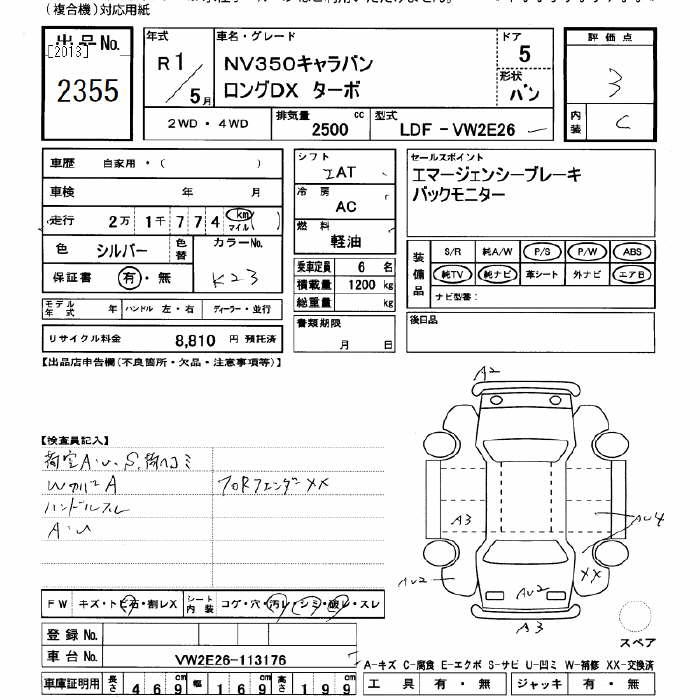 (複合機)対応用紙
出品No.
[2013]
2355
年式
R1/5月
車名・グレード
NV350キャラバン
ロングDX ターボ
ドア
5
形状
バン
評価点
3
内装
C
2WD・4WD
排気量
2500 cc
型式
LDF-VW2E26
車歴 自家用・( )
車検 年 月
走行 2万1千774 km マイル ( )
色 シルバー 色替
カラーNo.
K23
保証書 有・無
モデル年式 年 ハンドル 左・右 ディーラー・並行
リサイクル料金 8,810 円 預託済
シフト
IAT
冷房
AC
燃料
軽油
乗車定員 6 名
積載量 1200 kg
総重量 kg
書類期限
月 日
セールスポイント
エマージェンシーブレーキ
バックモニター
装備品
S/R 純A/W P/S P/W ABS
純TV 純ナビ 革シート 外ナビ エアB
ナビ型番:
後日品
【出品店申告欄(不良箇所・欠品・注意事項等)】
【検査員記入】
荷室A・U、S、
WカバーA
フロRフェンダーXX
ハンドルスレ
A・U
A2
A3
AU4
AU2
AU2
XX
A3
スペア
FW キズ・トビ石・割レX
シート内装 コゲ・穴・汚レ・シミ・破レ・スレ
登録No.
車台No. VW2E26-113176
車庫証明用 長さ 469 cm 幅 169 cm 高さ 199 cm
A-キズ C-腐食 E-エクボ S-サビ U-凹ミ W-補修 XX-交換済
工具 有・無 ジャッキ 有・無